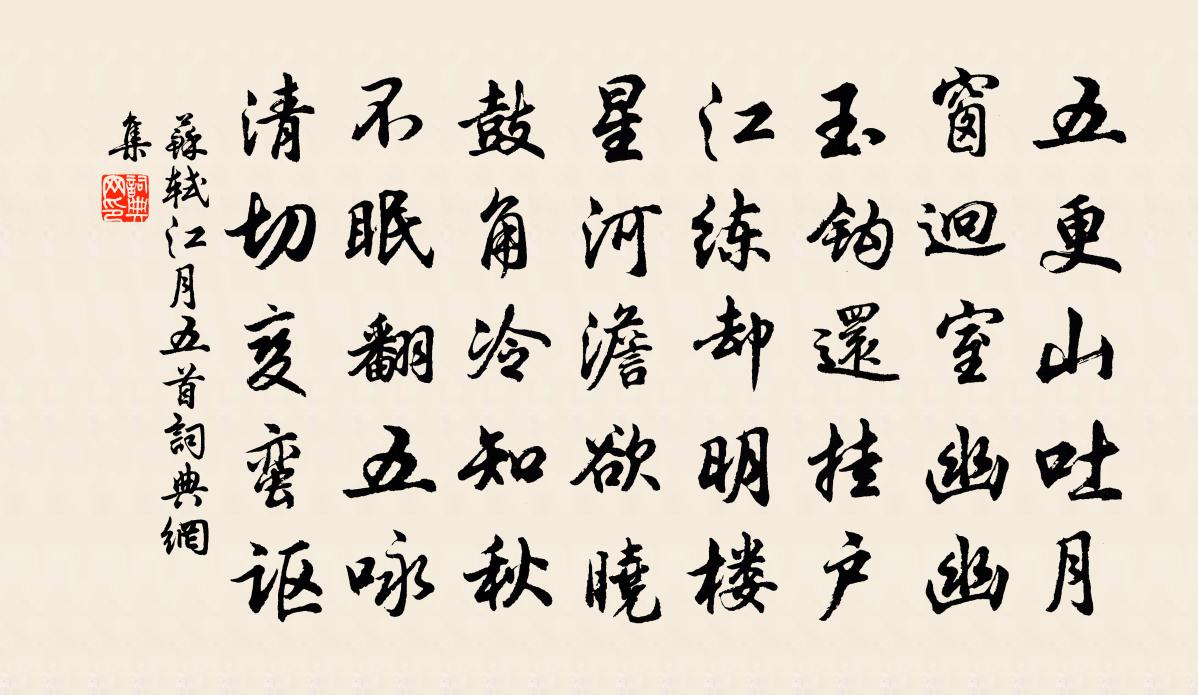 五更山吐月
窗迥室幽幽
玉鈎還挂户
江练却明楼
星河澹欲曉
鼓角冷知秋
不眠翻五咏
清切变蛮讴
蘇軾江月五首詞典網
集
詞典網印